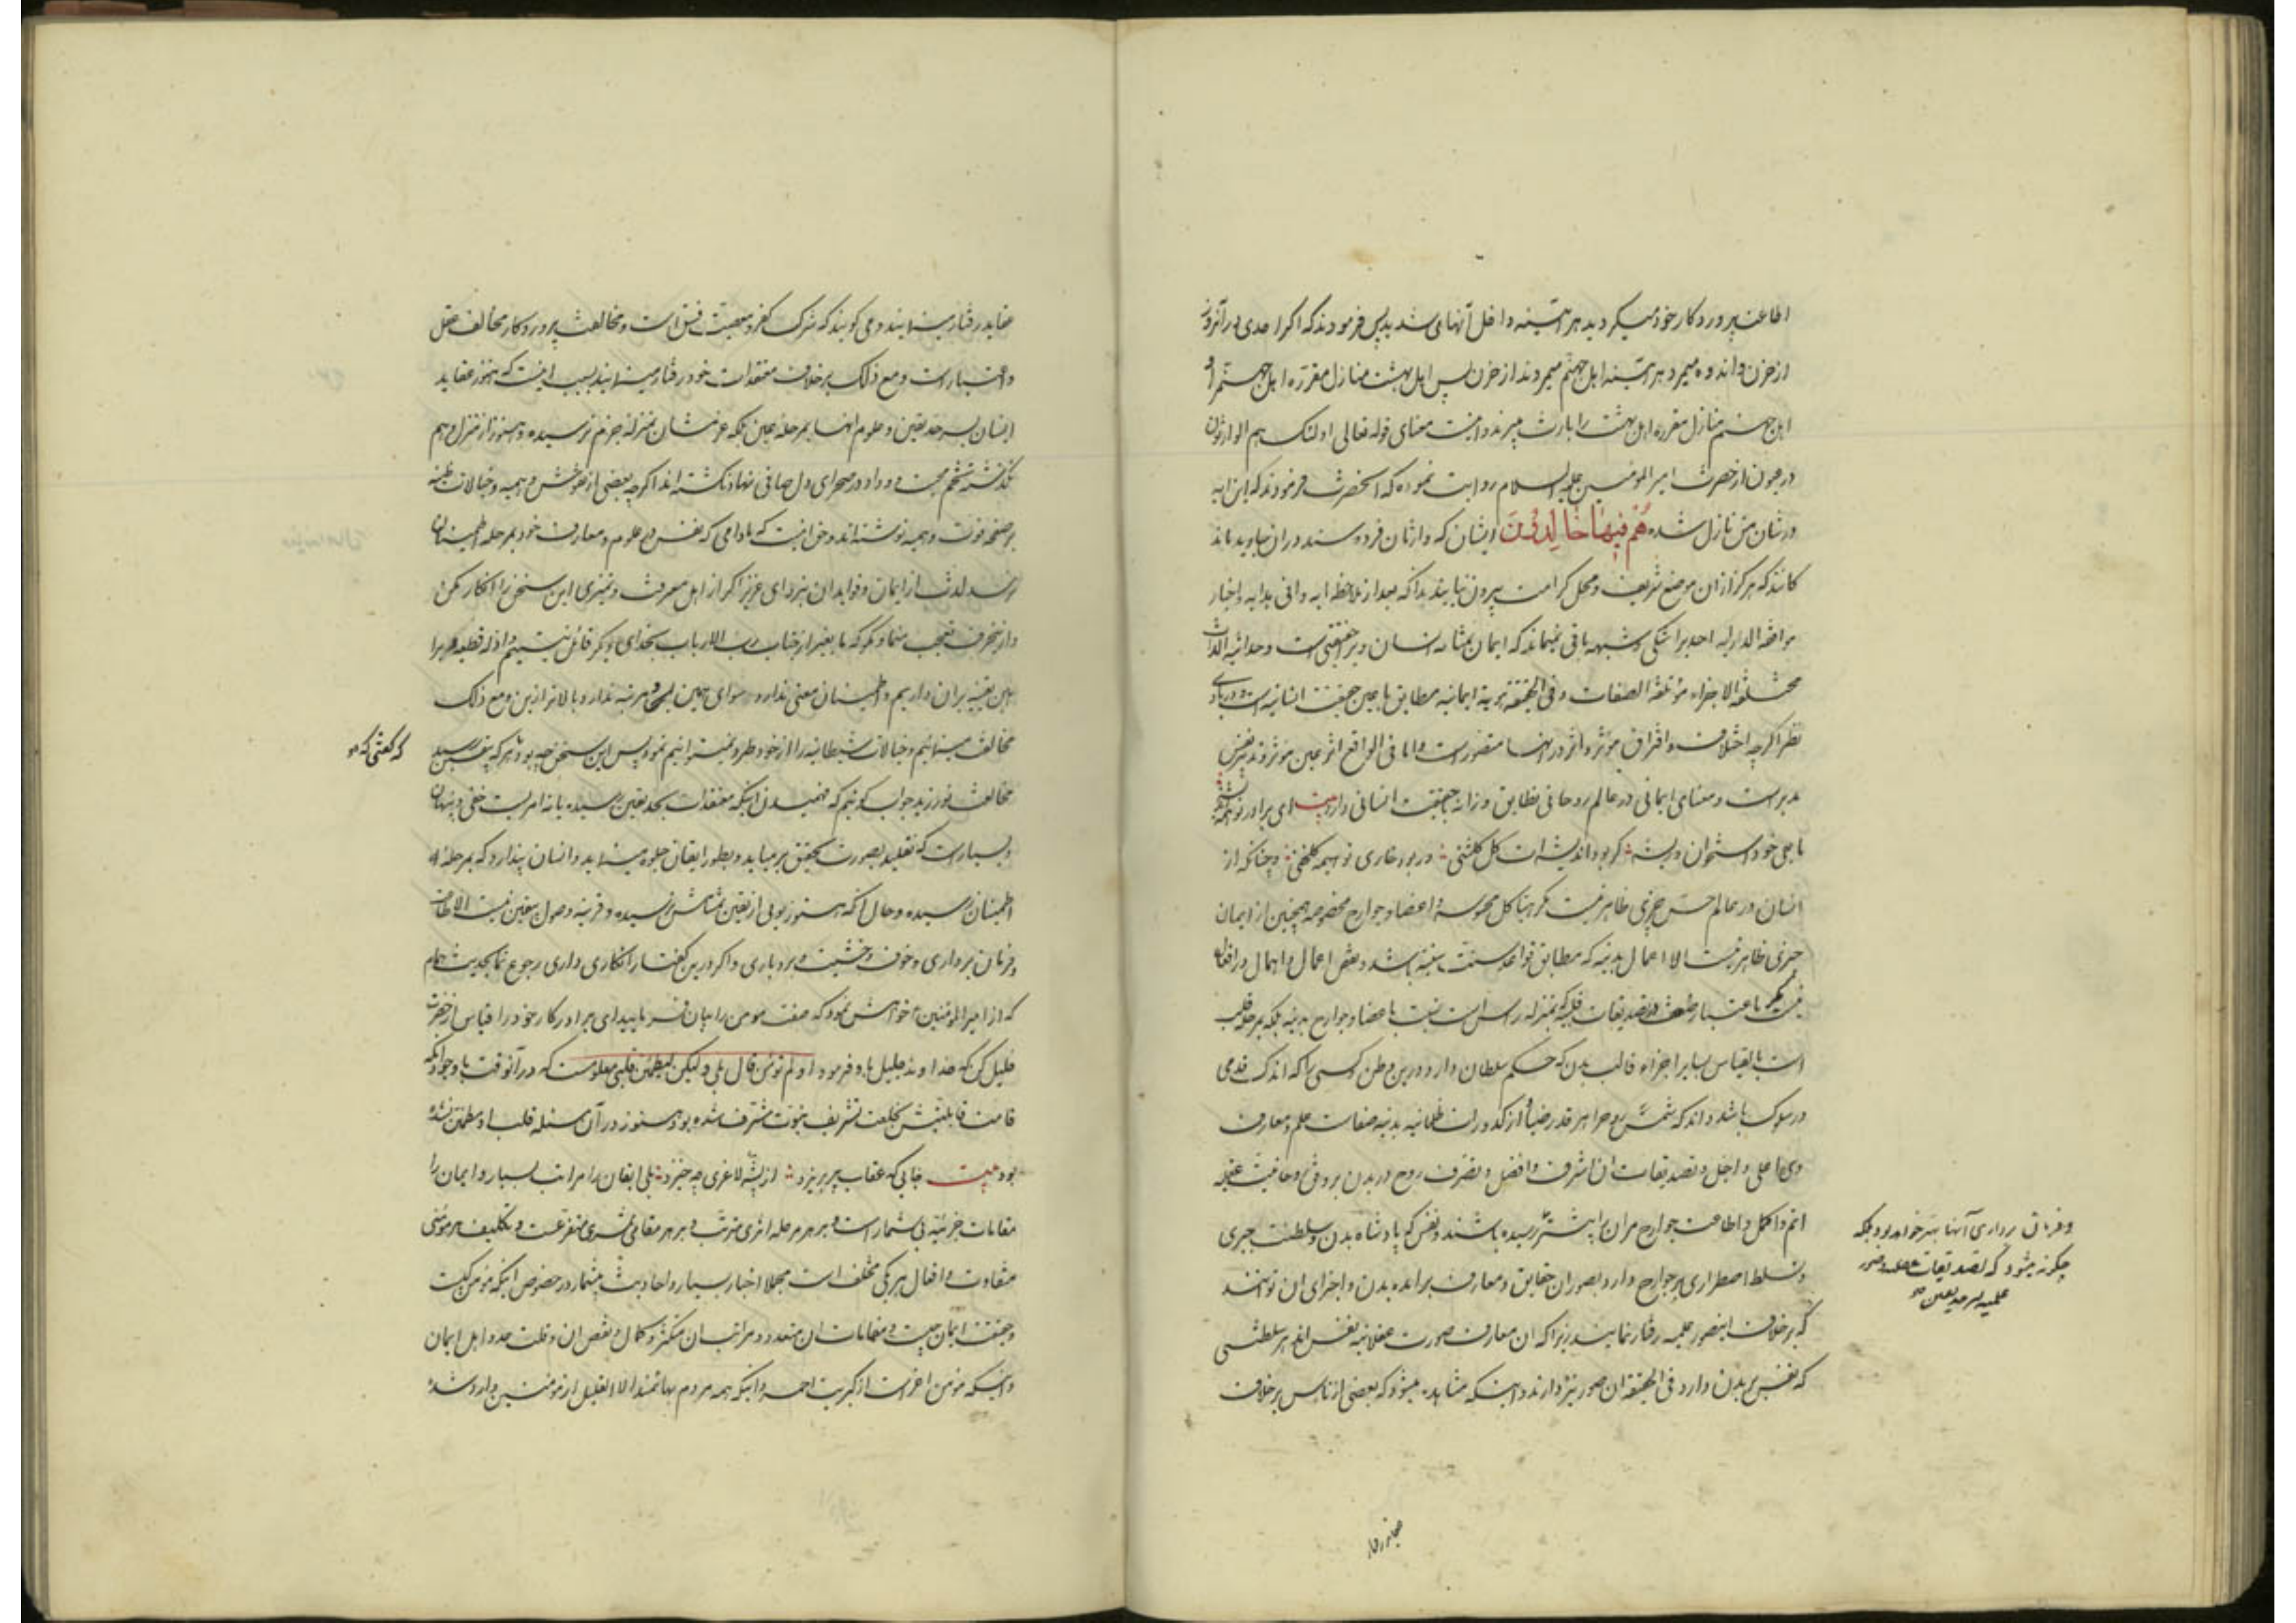 اطاعت پروردکار خود میکردید هر آینه داخل آنها می شدید پس فرمودند که اکر احدی در آنروز
از حزن و اندوه میمرد هر آینه اهل جهنم میمردند از حزن پس اهل بهشت منازل مقرره اهل جهنم را و
اهل جهنم منازل مقرره اهل بهشت را بارث میبرند و اینست معنای قوله تعالی اولئک هم الوارثون
در عیون از حضرت امیر المؤمنین علیه السلام روایت نموده که آنحضرت فرمودند که این ایه
در شان من نازل شده هُم فیهٰا خٰالِدُونَ ایشان که وارثان فردوسند در ان جاوید ماند
کانند که هرکز از ان موضع شریف و محل کرامت بیرون نیایند بدانکه بعد از ملاحظه ایه وافی بدایه و اخبار
احدیرا شکی و شبهه باقی نمیماند که ایمان بمثابه انسان و بر حقیقتی است وحدانیة الذات
مختلفة الاجزاء مؤتلفة الصفات و فی الحقیقة هویة ایمانیه مطابق با همین حقیقت انسانیه است
نظر اکرچه اختلاف و افتراق مؤثر و اثر در انها متصور است و اما فی الواقع اثر عین موثر و تدبیر نفس
مدبر است و معنای ایمانی در عالم روحانی تطابق وزانه با حقیقت انسانی دارد بیت ای برادر تو همه اندیشه
ما بقی خود استخوان و ریشه کر بود اندیشه ات کل کلشنی ور بود خاری تو هیمه کلخنی و چنانکه از
انسان در عالم حس چیزی ظاهر نیست مکر هیاکل محسوسه و اعضا و جوارح مخصوصه همچنین از ایمان
چیزی ظاهر نیست الا اعمال بدنیه که مطابق قواعد سنت سنیه باشد و نقص اعمال و اهمال در افعال
نیست مکر باعتبار ضعف تصدیقات قلبیه که بمنزله راس است نسبت باعضا و جوارح بدنیه بلکه بمرحله قلب
است بالقیاس بسایر اجزاء قالب بدن که حکم سلطان دارد در این وطن و کسی را که اندک قدمی
در سلوک باشد داند که شمس روح را هر قدر ضیاء از کدورات ظلمانیه بدنیه صفات علم و معارف
وی اعلی و اجل و تصدیقات ان اشرف و افضل و تصرف روح در بدن بر وفق و حاقیت عقلیه
اتم و اکمل و اطاعت جوارح مران را بیشتر رسیده باشند و نفس که پادشاه بدن و سلطنت جبری
و تسلط اضطراری بر جوارح دارد بصور ان حقایق و معارف براید بدن و اجزای ان نتوانند
که بر خلاف اینصور علمیه رفتار نمایند زیرا که ان معارف صورت عقلانیه نفس اند هر سلطنتی
که نفس بر بدن دارد فی الحقیقه ان صور نیز دارند و اینکه مشاهد میشود که بعضی از ناس بر خلاف
و فرمان برداری آنها بهتر خواهد بود بلکه
چکونه میشود که تصدیقات و صور
علمیه بسرحد یقین
عقاید رفتار مینمایند و می کویند که شرک کفر و معصیت فسق است و مخالفت پروردکار مخالف عقل
و اعتبار است و مع ذلک بر خلاف معتقدات خود رفتار مینمایند بسبب اینست که هنوز عقاید
ایشان بسرحد یقین و علوم انها بمرحله عین بلکه عزمشان بمنزله جزم نرسیده و هنوز از منزل وهم
نکذشته تخم محبت و وداد در صحرای دل صافی نهاد نکشته اند اکرچه بعضی از نقوش وهمیه و خیالات ظنیه
بر صفحه قوت وهمیه نوشته اند و حق اینست که مادامی که نفس در علوم و معارف خود بمرحله اطمینان
نرسد لذت از ایمان و فواید ان نبرد ای عزیز اکر از اهل معرفت و تمیزی این سخن را انکار مکن
و از این حرف تعجب منما و مکو که ما بغیر از جناب رب الارباب بخدای دیکر قائل نیستیم و ادله قطعیه و براهین
یقینیه بران داریم و اطمینان معنی ندارد سوای همین مرتبه ندارد بالاتر از این و مع ذلک
مخالفت مینمائیم و خیالات شیطانیه را از خود طرد نمیتوانیم نمود پس این سخن چه بود هر که بیقین رسید
که کفتی که
مخالفت نورزید جواب کوئیم که فهمیدن اینکه معتقدات بحد یقین رسیده یا نه امریست خفی و پنهان
و بسیار است که تقلید بصورت تحقیق بر میاید و بطور ایقان جلوه مینماید و انسان پندارد که بمرحله
اطمینان رسیده و حال آنکه هنوز بوئی از یقین بمشامش نرسیده و قرینه وصول بیقین نیست الا اطاعت
و فرمان برداری و خوف و خشیت و بردباری و اکر در این کفتار انکاری داری رجوع نما بحدیث همام
که از امیر المؤمنین خواهش نمود که صفت مومن را بیان فرمایید ای برادر کار خود را قیاس از حضرت
خلیل کن که خداوند جلیل باو فرمود اولم تؤمن قال بلی ولیکن لیطمئن قلبی معلومست که در آنوقت با وجود آنکه
قامت قابلیتش بخلعت تشریف نبوت مشرف شده بود هنوز در آن مسئله قلب او مطمئن نشده
بود بیت جایی که عقاب پر بریزد از پشه لاغری چه خیزد بلی ایقان را مراتب بسیار و ایمان را
مقامات جزئیه بی شمار است و بر هر مرحله اثری مترتب و بر هر مقامی ثمری متفرعست و تکلیف هر مؤمنی
متفاوت و افعال هر یکی مختلف است مجملا اخبار بسیار و احادیث بیشمار در خصوص اینکه مؤمن کیست
و حقیقت ایمان چیست و مقامات ان متعدد و مراتب ان متکثر و کمال و نقص ان و قلت عدد اهل ایمان
و اینکه مؤمن اعز است از کبریت احمر و اینکه همه مردم بهائمند الا القلیل از مؤمنین وارد شده
عقاید رفتار